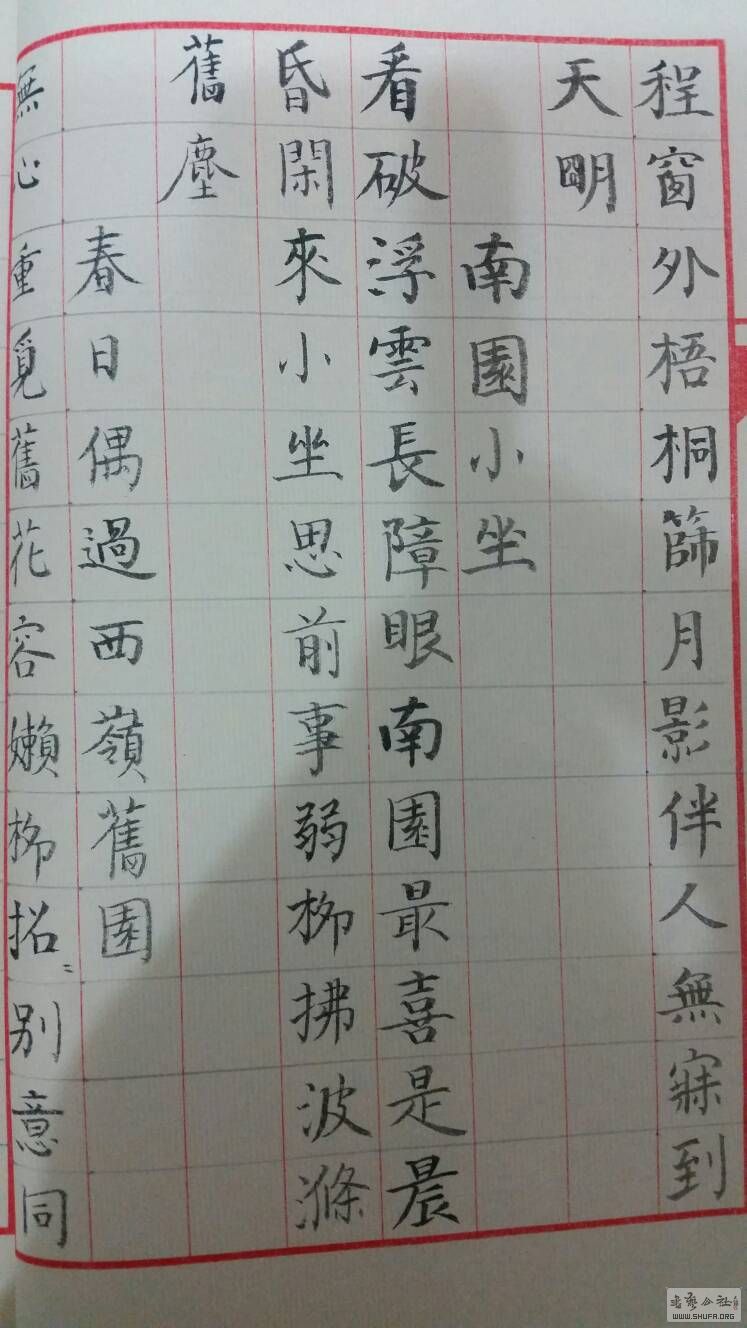 程窗外梧桐篩月影伴人無寐到
天明
南園小坐
看破浮雲長障眼南園最喜是晨
昏閑來小坐思前事弱柳拂波滌
舊塵
春日偶過西嶺舊園
無心重覓舊花容嬾柳招〻別意同
WWW.SHUFA.ORG